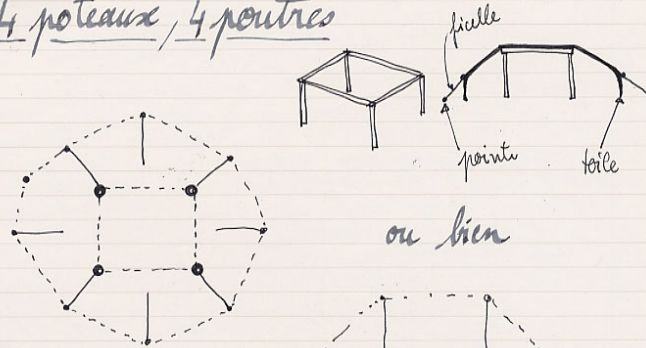 4 poteaux, 4 poutres
ficelle
pointe
toile
ou bien